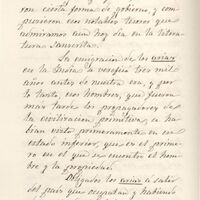 ron cierta forma de gobierno, y com-
pusieron esos notables libros que
admiramos aun hoy dia en la litera-
tura Sanscrita.
La emigracion de los arias
en la India se verificó tres mil
años antes de nuestra era, y por
lo tanto esos hombres, que fueron
mas tarde los propagadores de
la civilizacion primitiva, ha-
bian visto primeramente en un
estado inferior, que es el prime-
ro en el que se encontró el hombre
y la propiedad.
Obligados los arias a salir
del pais que ocupaban y habiendo